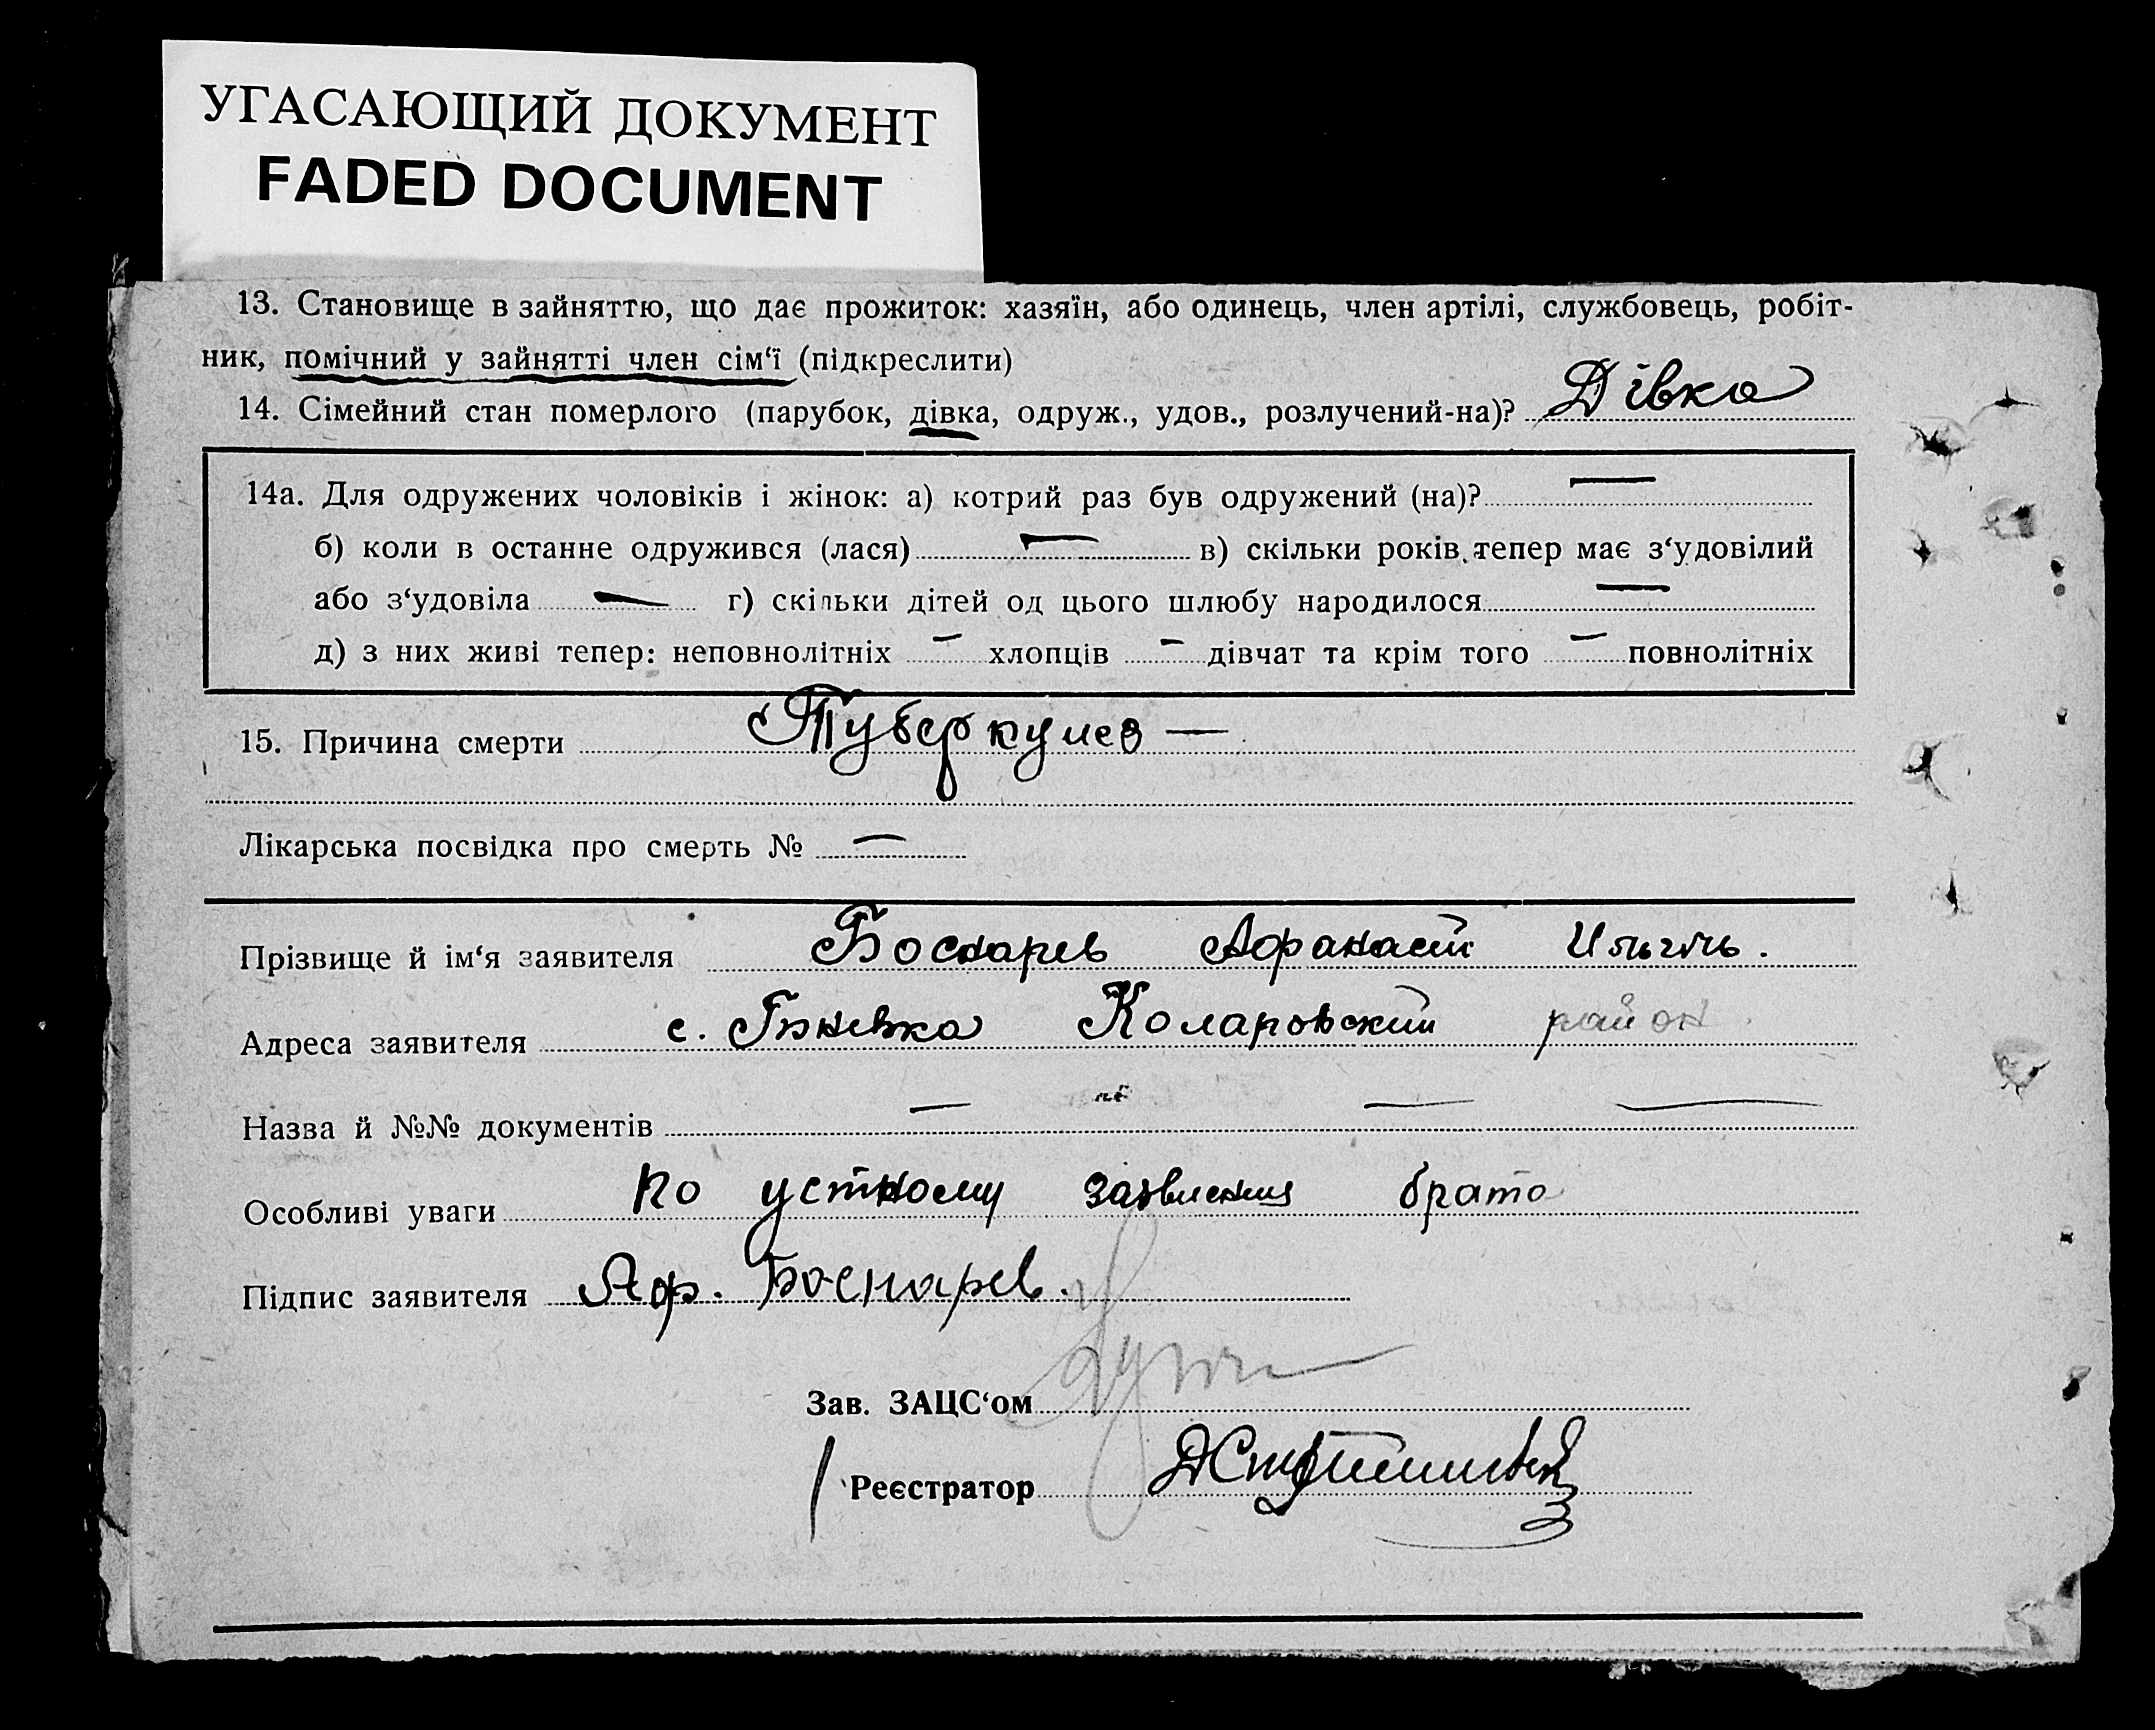 УГАСАЮЩИЙ ДОКУМЕНТ
FADED DOCUMENT
13. Становище в зайняттю, що дає прожиток: хазяїн, або одинець, член артілі, службовець, робіт-
ник, помічний у зайнятті член сім‘ї (підкреслити)
14. Сімейний стан померлого (парубок, дівка, одруж., удов., розлучений-на)? Дівка
14а. Для одружених чоловіків і жінок: а) котрий раз був одружений (на)? —
б) коли в останне одружився (лася) — в) скільки років тепер має з‘удовілий
або з‘удовіла — г) скільки дітей од цього шлюбу народилося —
д) з них живі тепер: неповнолітніх — хлопців — дівчат та крім того — повнолітніх
15. Причина смерти Туберкулез —
Лікарська посвідка про смерть № —
Прізвище й ім‘я заявителя Боснарев Афанасий Ильичь.
Адреса заявителя с. Коларовский район
Назва й №№ документів — — —
Особливі уваги По устному заявления брата
Підпис заявителя Аф. Боснарев.
Зав. ЗАЦС‘ом
Реєстратор